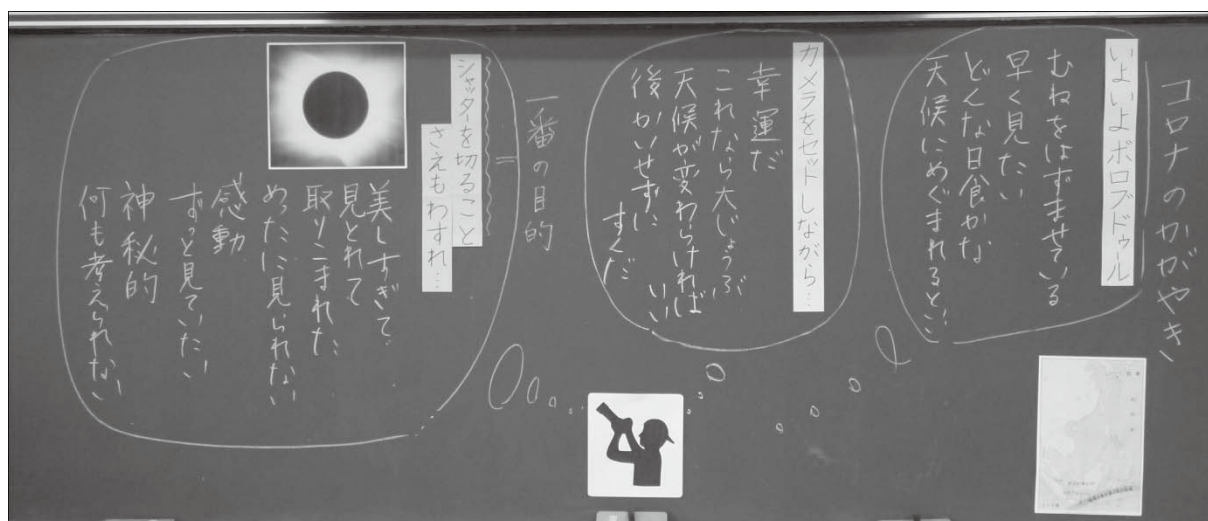 コロナのかがやき
いよいよボロブドゥール
むねをはずませている
早く見たい
どんな日食かな
天候にめぐまれるといい
カメラをセットしながら…
幸運だ
これなら大じょうぶ
天候が変わらなければいい
後かいせずにすんだ
一番の目的
シャッターを切ること
さえもわすれ…
美しすぎて
見とれて
取りこまれた
めったに見られない
感動
ずっと見ていたい
神秘的
何も考えられない